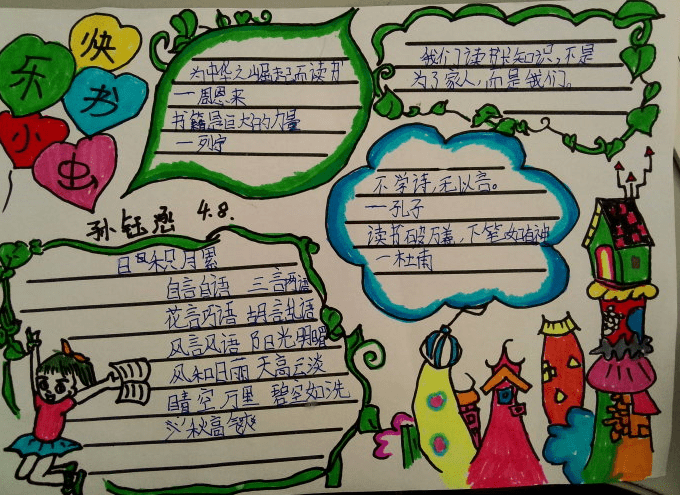 快乐
书
小虫
为中华之崛起而读书
一周恩来
书籍是巨大的力量
一列宁
我们读书长知识,不是
为了家人,而是我们。
不学诗,无以言。
一孔子
读书破万
一杜甫
4.8.
日积月累
自言自语 三言两语
花言巧语 胡言乱语
风言风语 阳光明媚
风和日丽 天高云淡
晴空万里 碧空如洗
秋高气爽